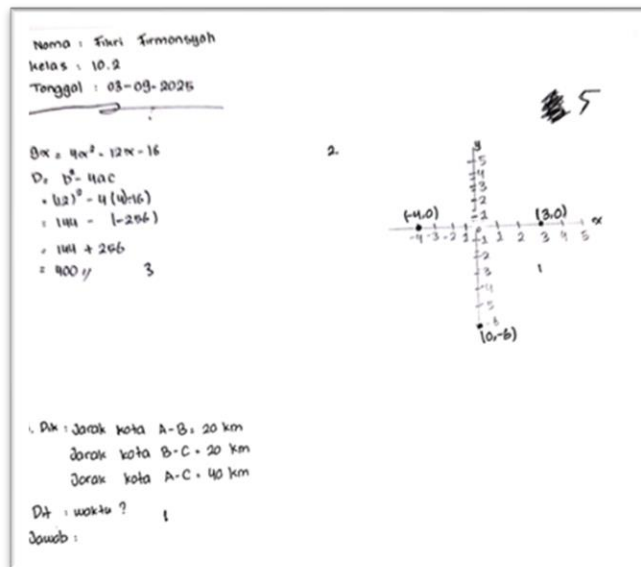 Nama : Fikri Firmansyah
Kelas : 10.2
Tanggal : 03-09-2025
5
9x = 4x² - 12x - 16
D = b² - 4ac
= (12)² - 4(4)(-16)
= 144 - (-256)
= 144 + 256
= 400 //
3
2.
y
5
4
3
2
1
(-4,0)
(3,0)
x
-4 -3 -2 -1
1 2 3 4 5
-1
-2
-3
-4
-5
-6
(0,-6)
1
Dik : Jarak kota A-B = 20 km
Jarak kota B-C = 20 km
Jarak kota A-C = 40 km
Dit : waktu ?
1
Jawab :